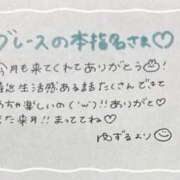 グレースの本指名さま♡
今月も来てくれてありがとう
最近生活感ある話たくさんできて
めちゃ楽しいの(´ω`)!!ありがと♡
また来月!!まっててね♡
ゆずるより